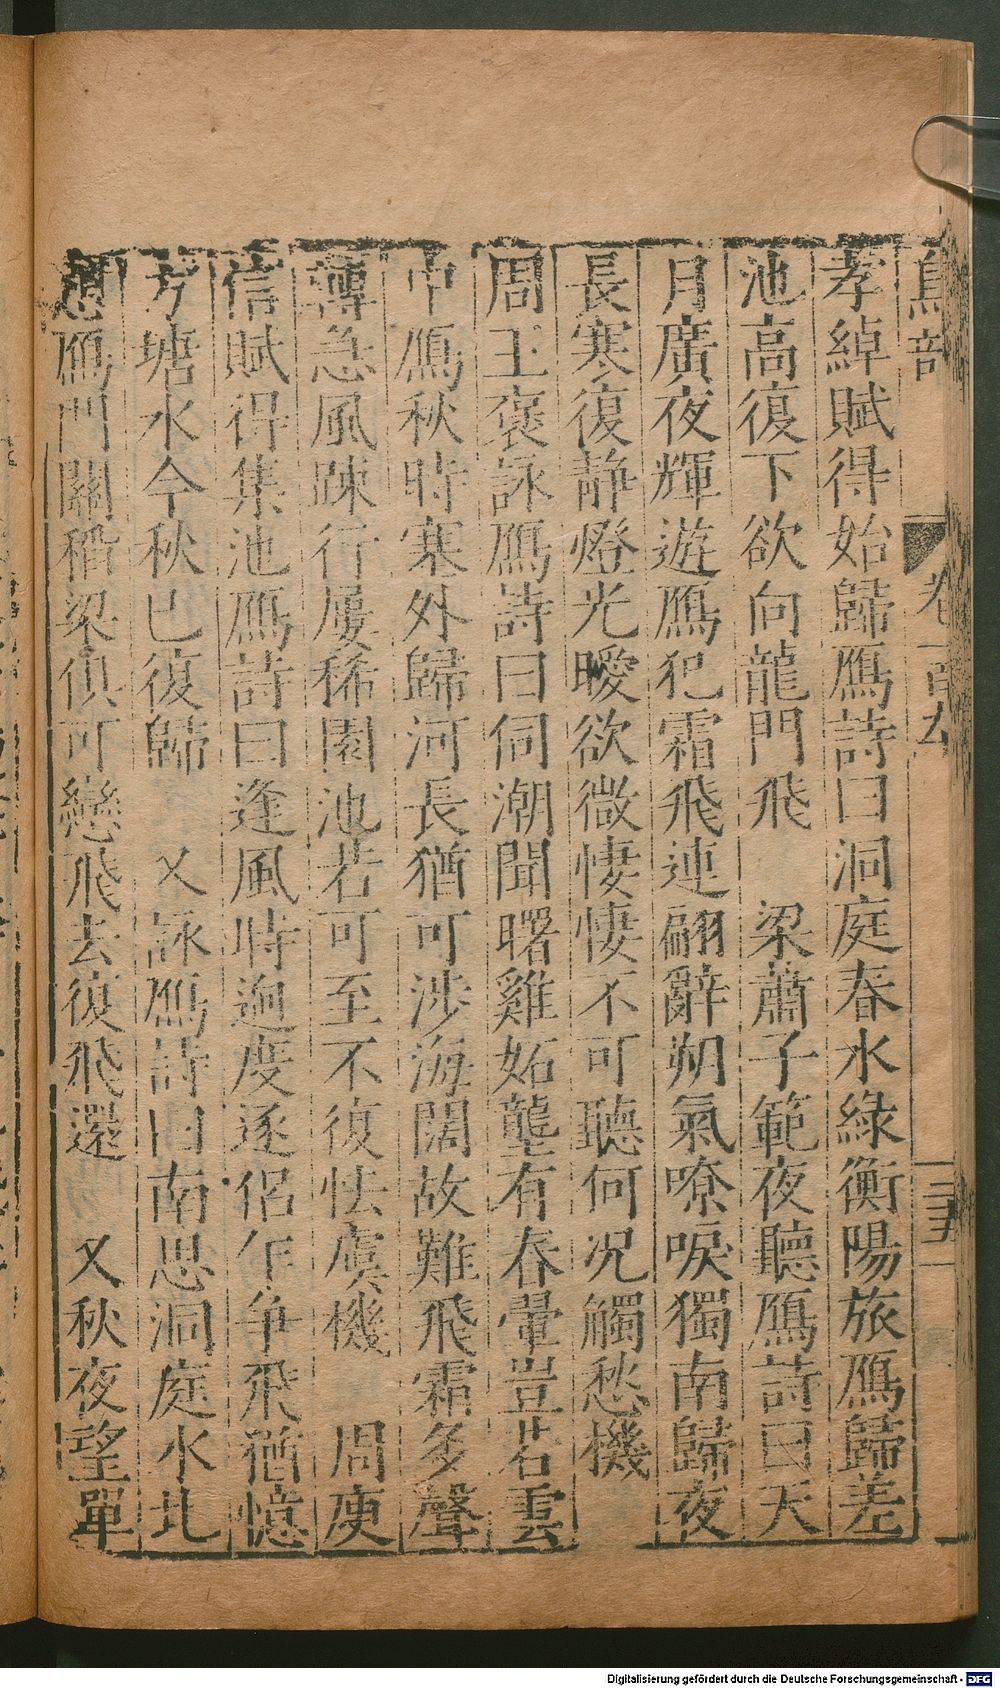 鳥部
卷
孝綽賦得始歸鴈詩曰洞庭春水綠衡陽旅鴈歸差
池高復下欲向龍門飛　梁蕭子範夜聽鴈詩曰天
月廣夜輝遊鴈犯霜飛連翩辭朔氣嘹唳獨南歸夜
長寒復靜燈光曖欲微悽悽不可聽何况觸愁機
周王褒詠鴈詩曰伺潮聞曙雞妬壟有春暈豈若雲
中鴈秋時塞外歸河長猶可涉海闊故難飛霜多聲
轉急風疎行屢稀園池若可至不復怯虞機　周庾
信賦得集池鴈詩曰逢風時迥度逐侶乍争飛猶憶
方塘水今秋已復歸　又詠鴈詩曰南思洞庭水北
想鴈門關稻梁俱可戀飛去復飛還　又秋夜望單
Digitalisierung gefördert durch die Deutsche Forschungsgemeinschaft - DFG